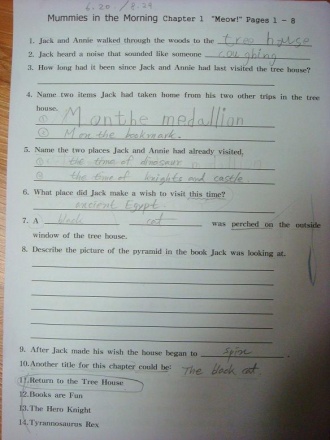 6.20 / 7.29
Mummies in the Morning Chapter 1 "Meow!" Pages 1 - 8
1. Jack and Annie walked through the woods to the tree house
2. Jack heard a noise that sounded like someone coughing
3. How long had it been since Jack and Annie had last visited the tree house?
4. Name two items Jack had taken home from his two other trips in the tree
house.
① M on the medallion
② M on the bookmark.
5. Name the two places Jack and Annie had already visited.
① the time of dinosaur
② the time of knights and castle.
6. What place did Jack make a wish to visit this time?
ancient Egypt.
7. A black cat was perched on the outside
window of the tree house.
8. Describe the picture of the pyramid in the book Jack was looking at.
9. After Jack made his wish the house began to spin
10.Another title for this chapter could be: The black cat.
11.Return to the Tree House
12.Books are Fun
13.The Hero Knight
14.Tyrannosaurus Rex